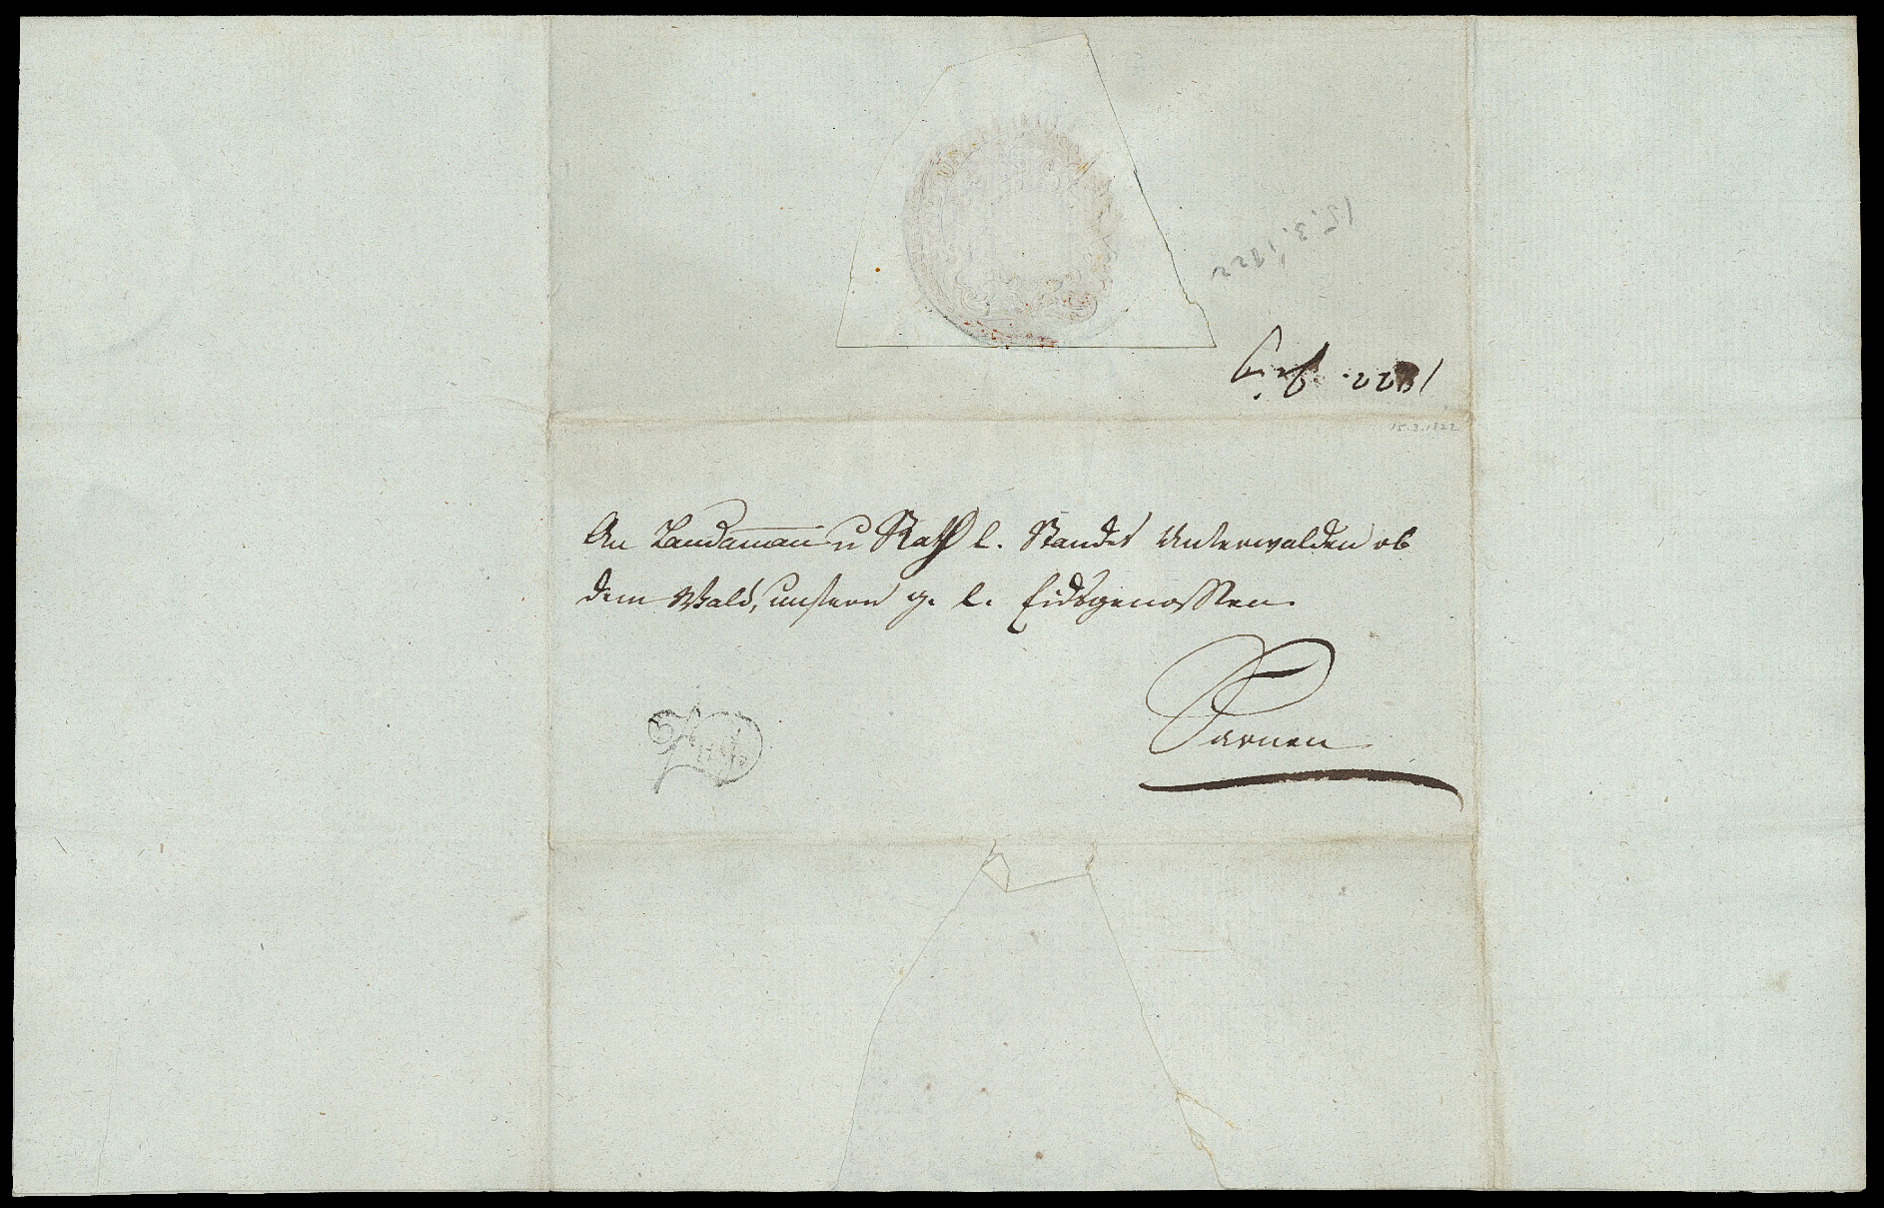 15.3.1822
1822.
15.3.1822
An Landaman u Rath l. Standes Unterwalden ob
dem Wald, unsern g. l. Eidsgenossen
Sarnen